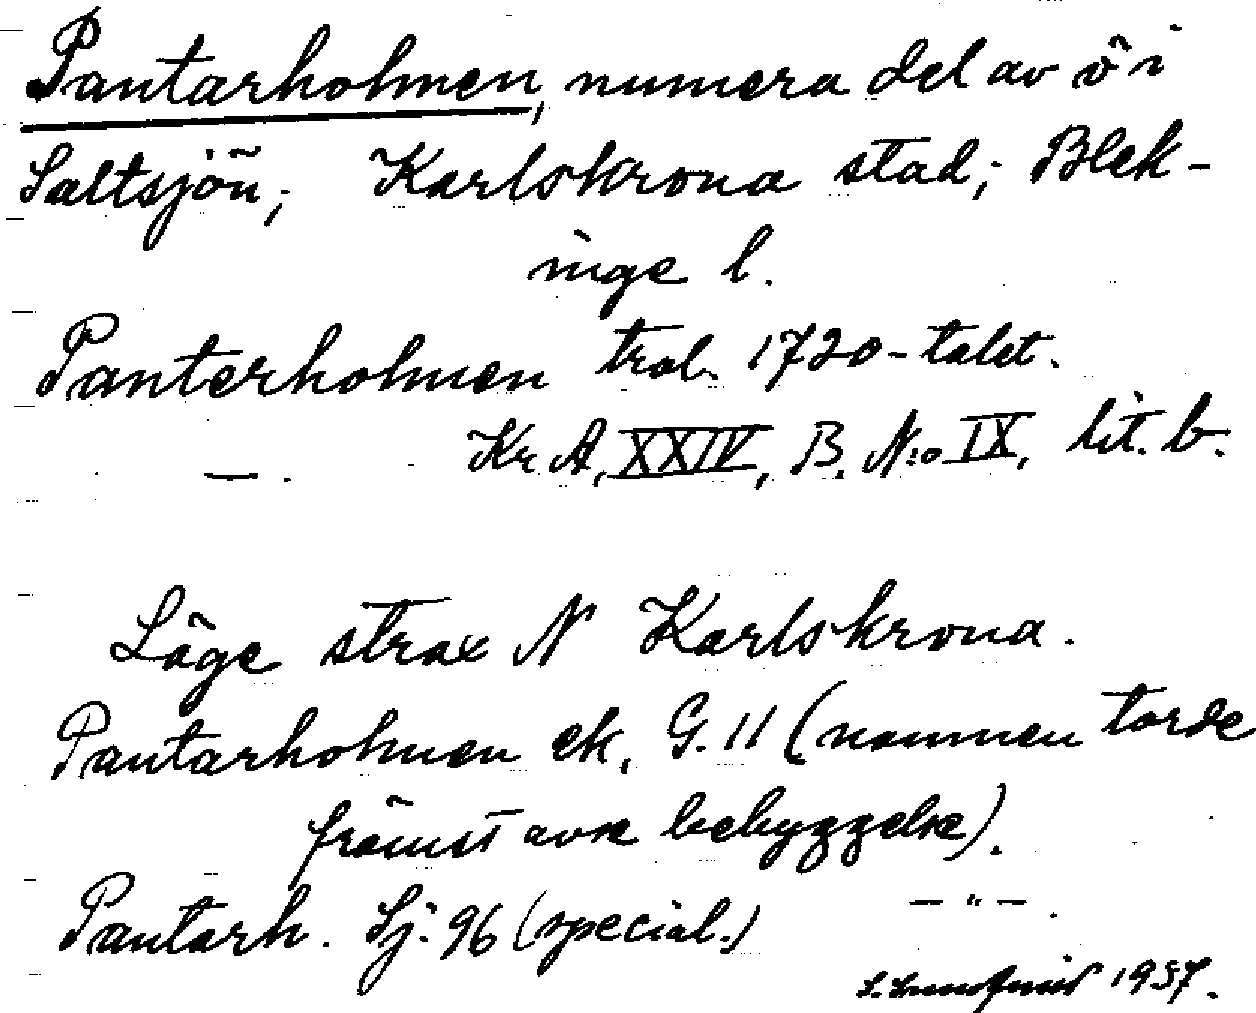 Pantarholmen, numera del av ö i
Saltsjön; Karlskrona stad; Blek-
inge l.
Panterholmen trol. 1720-talet.
Kr A, XXIV, B. N:o IX, lit. b.
— .
Läge strax N Karlskrona.
Pantarholmen ek. G. 11 (namnen torde
främst avse bebyggelse).
Pantarh. Sj: 96 (special.) — " — .
S. Lundqvist 1937.